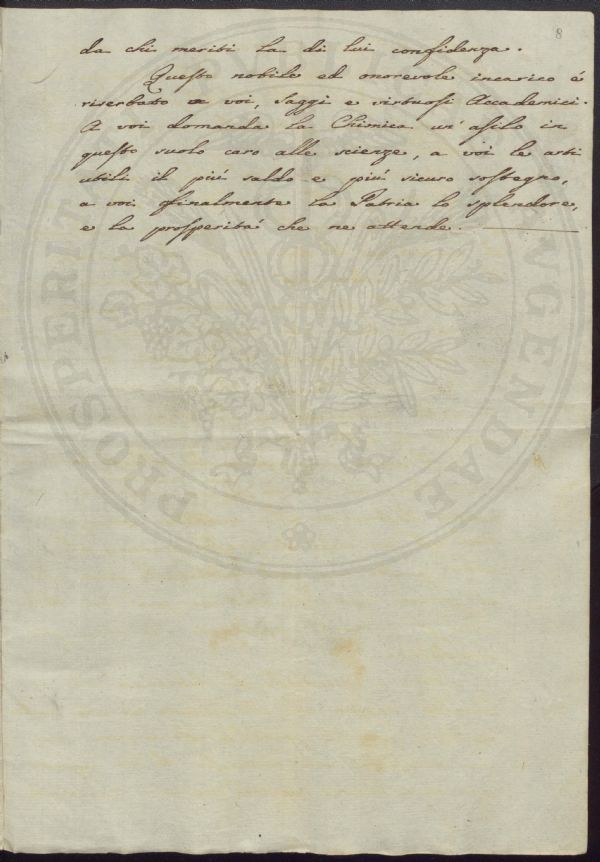 8
da chi meriti la di lui confidenza.
Questo nobile ed onorevole incarico é
riserbato a voi, Saggi e virtuosi Accademici.
A voi domanda la Chimica un' asilo in
questo suolo caro alle scienze, a voi le arti
utili il piú saldo e piú sicuro sostegno,
a voi finalmente la Patria lo splendore,
e la prosperitá che ne attende.
PROSPERITATI PVBLICAE AVGENDAE